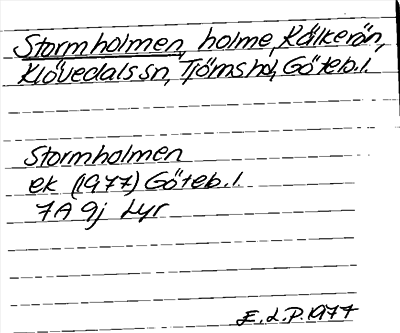 Stormholmen, holme, Kälkerön,
Klövedals sn, Tjörns hd, Göteb. l.
Stormholmen
ek (1977) Göteb. l.
7A 9j Lyr
E. L. P. 1977